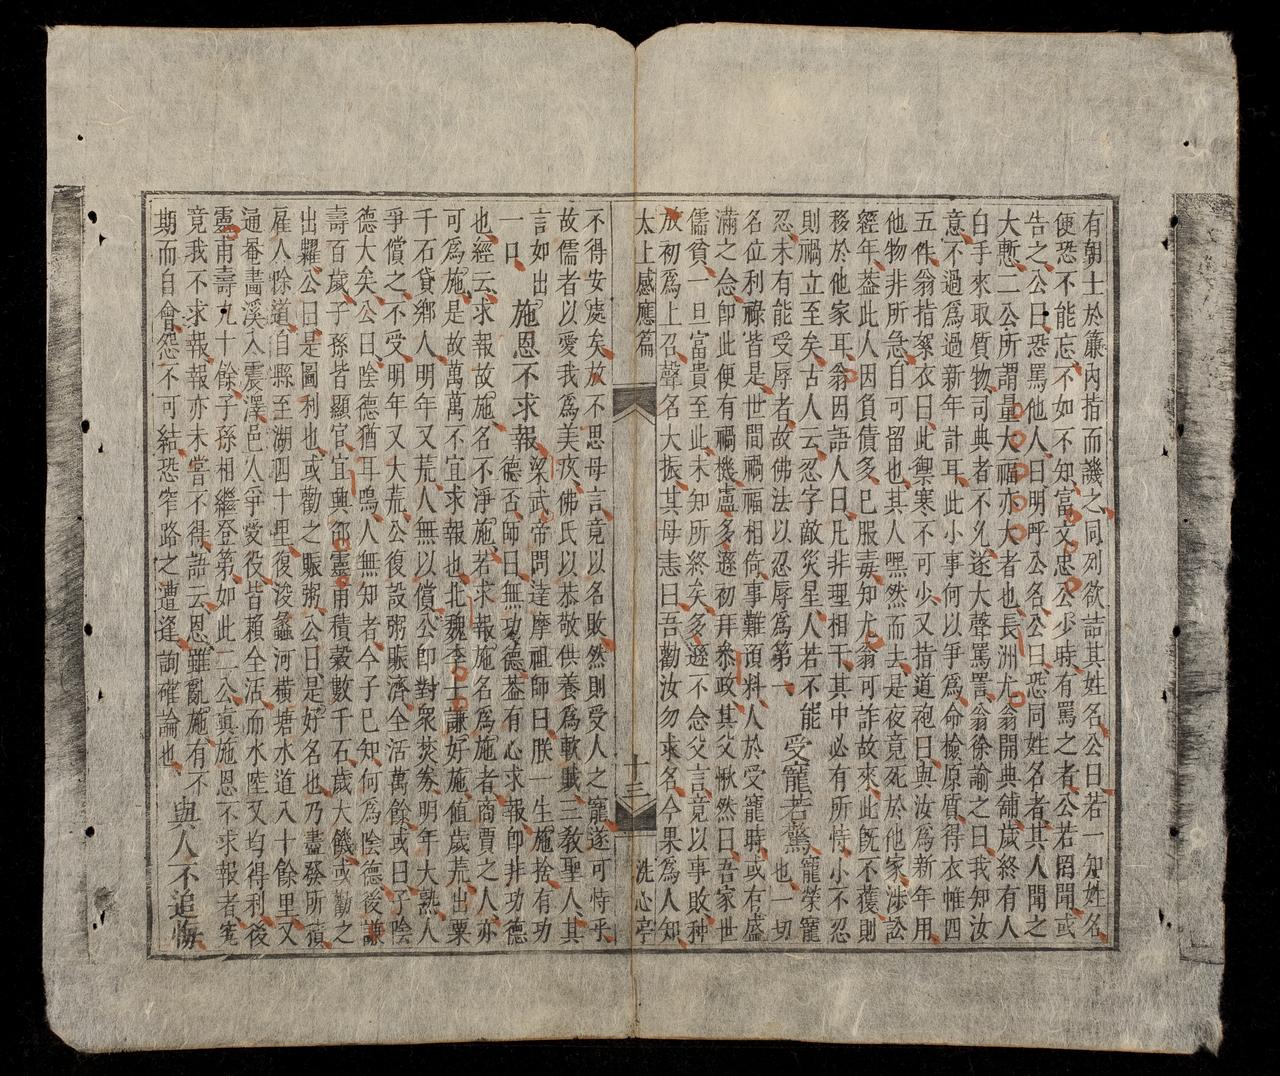 有朝士於簾內指而譏之同列欲詰其姓名公曰若一知姓名
便恐不能忘不如不知富文忠公少時有罵之者公若罔聞或
告之公曰恐罵他人曰明呼公名公曰恐同姓名者其人聞之
大慙二公所謂量大福亦大者也長洲尤翁開典舖歲終有人
白手來取質物可典者不允遂大聲罵詈翁徐諭之曰我知汝
意不過為過新年計耳此小事何以爭為命檢原質得衣帷四
五件翁指絮衣曰此禦寒不可少又指道袍曰與汝為新年用
他物非所急自可留也其人嘿然而去是夜竟死於他家涉訟
經年葢此人因負債多已服毒知尤翁可詐故來此旣不獲則
移於他家耳翁因語人曰凡非理相干其中必有所恃小不忍
則禍立至矣古人云忍字敵災星人若不能 受寵若驚 寵榮寵
忍未有能受辱者故佛法以忍辱為第一 也一切
名位利祿皆是世間禍福相倚事難預料人於受寵時或有盛
滿之念卽此便有禍機盧多遜初拜叅政其父愀然曰吾家世
儒貧一旦富貴至此未知所終矣多遜不念父言竟以事敗种
放初為上召聲名大振其母恚曰吾勸汝勿求名今果為人知
太上感應篇 十三 洗心亭
不得安處矣放不思母言竟以名敗然則受人之寵遂可恃乎
故儒者以愛我為美疢佛氏以恭敬供養為軟賊三敎聖人其
言如出 施恩不求報 梁武帝問達摩祖師曰朕一生施捨有功
一口 德否師曰無功德葢有心求報卽非功德
也經云求報故施名不淨施若求報施名為施者商賈之人亦
可為施是故萬萬不宜求報也北魏李士謙好施値歲荒出粟
千石貸鄉人明年又荒人無以償公卽對衆焚劵明年大熟人
爭償之不受明年又大荒公復設粥賑濟全活萬餘或曰子陰
德大矣公曰陰德猶耳鳴人無知者今子已知何為陰德後謙
壽百歲子孫皆顯官宜興邵靈甫積穀數千石歲大饑或勸之
出糶公曰是圖利也或勸之賑粥公曰是好名也乃盡發所積
雇人除道自縣至湖㳇四十里復浚蠡河橫塘水道入十餘里又
通罨畫溪入震澤邑人爭受役皆賴全活而水陸又均得利後
靈甫壽九十餘子孫相繼登第如此二公眞施恩不求報者寃
竟我不求報報亦未嘗不得語云恩雖亂施有不 與人不追悔
期而自會怨不可結恐窄路之遭逢詢確論也